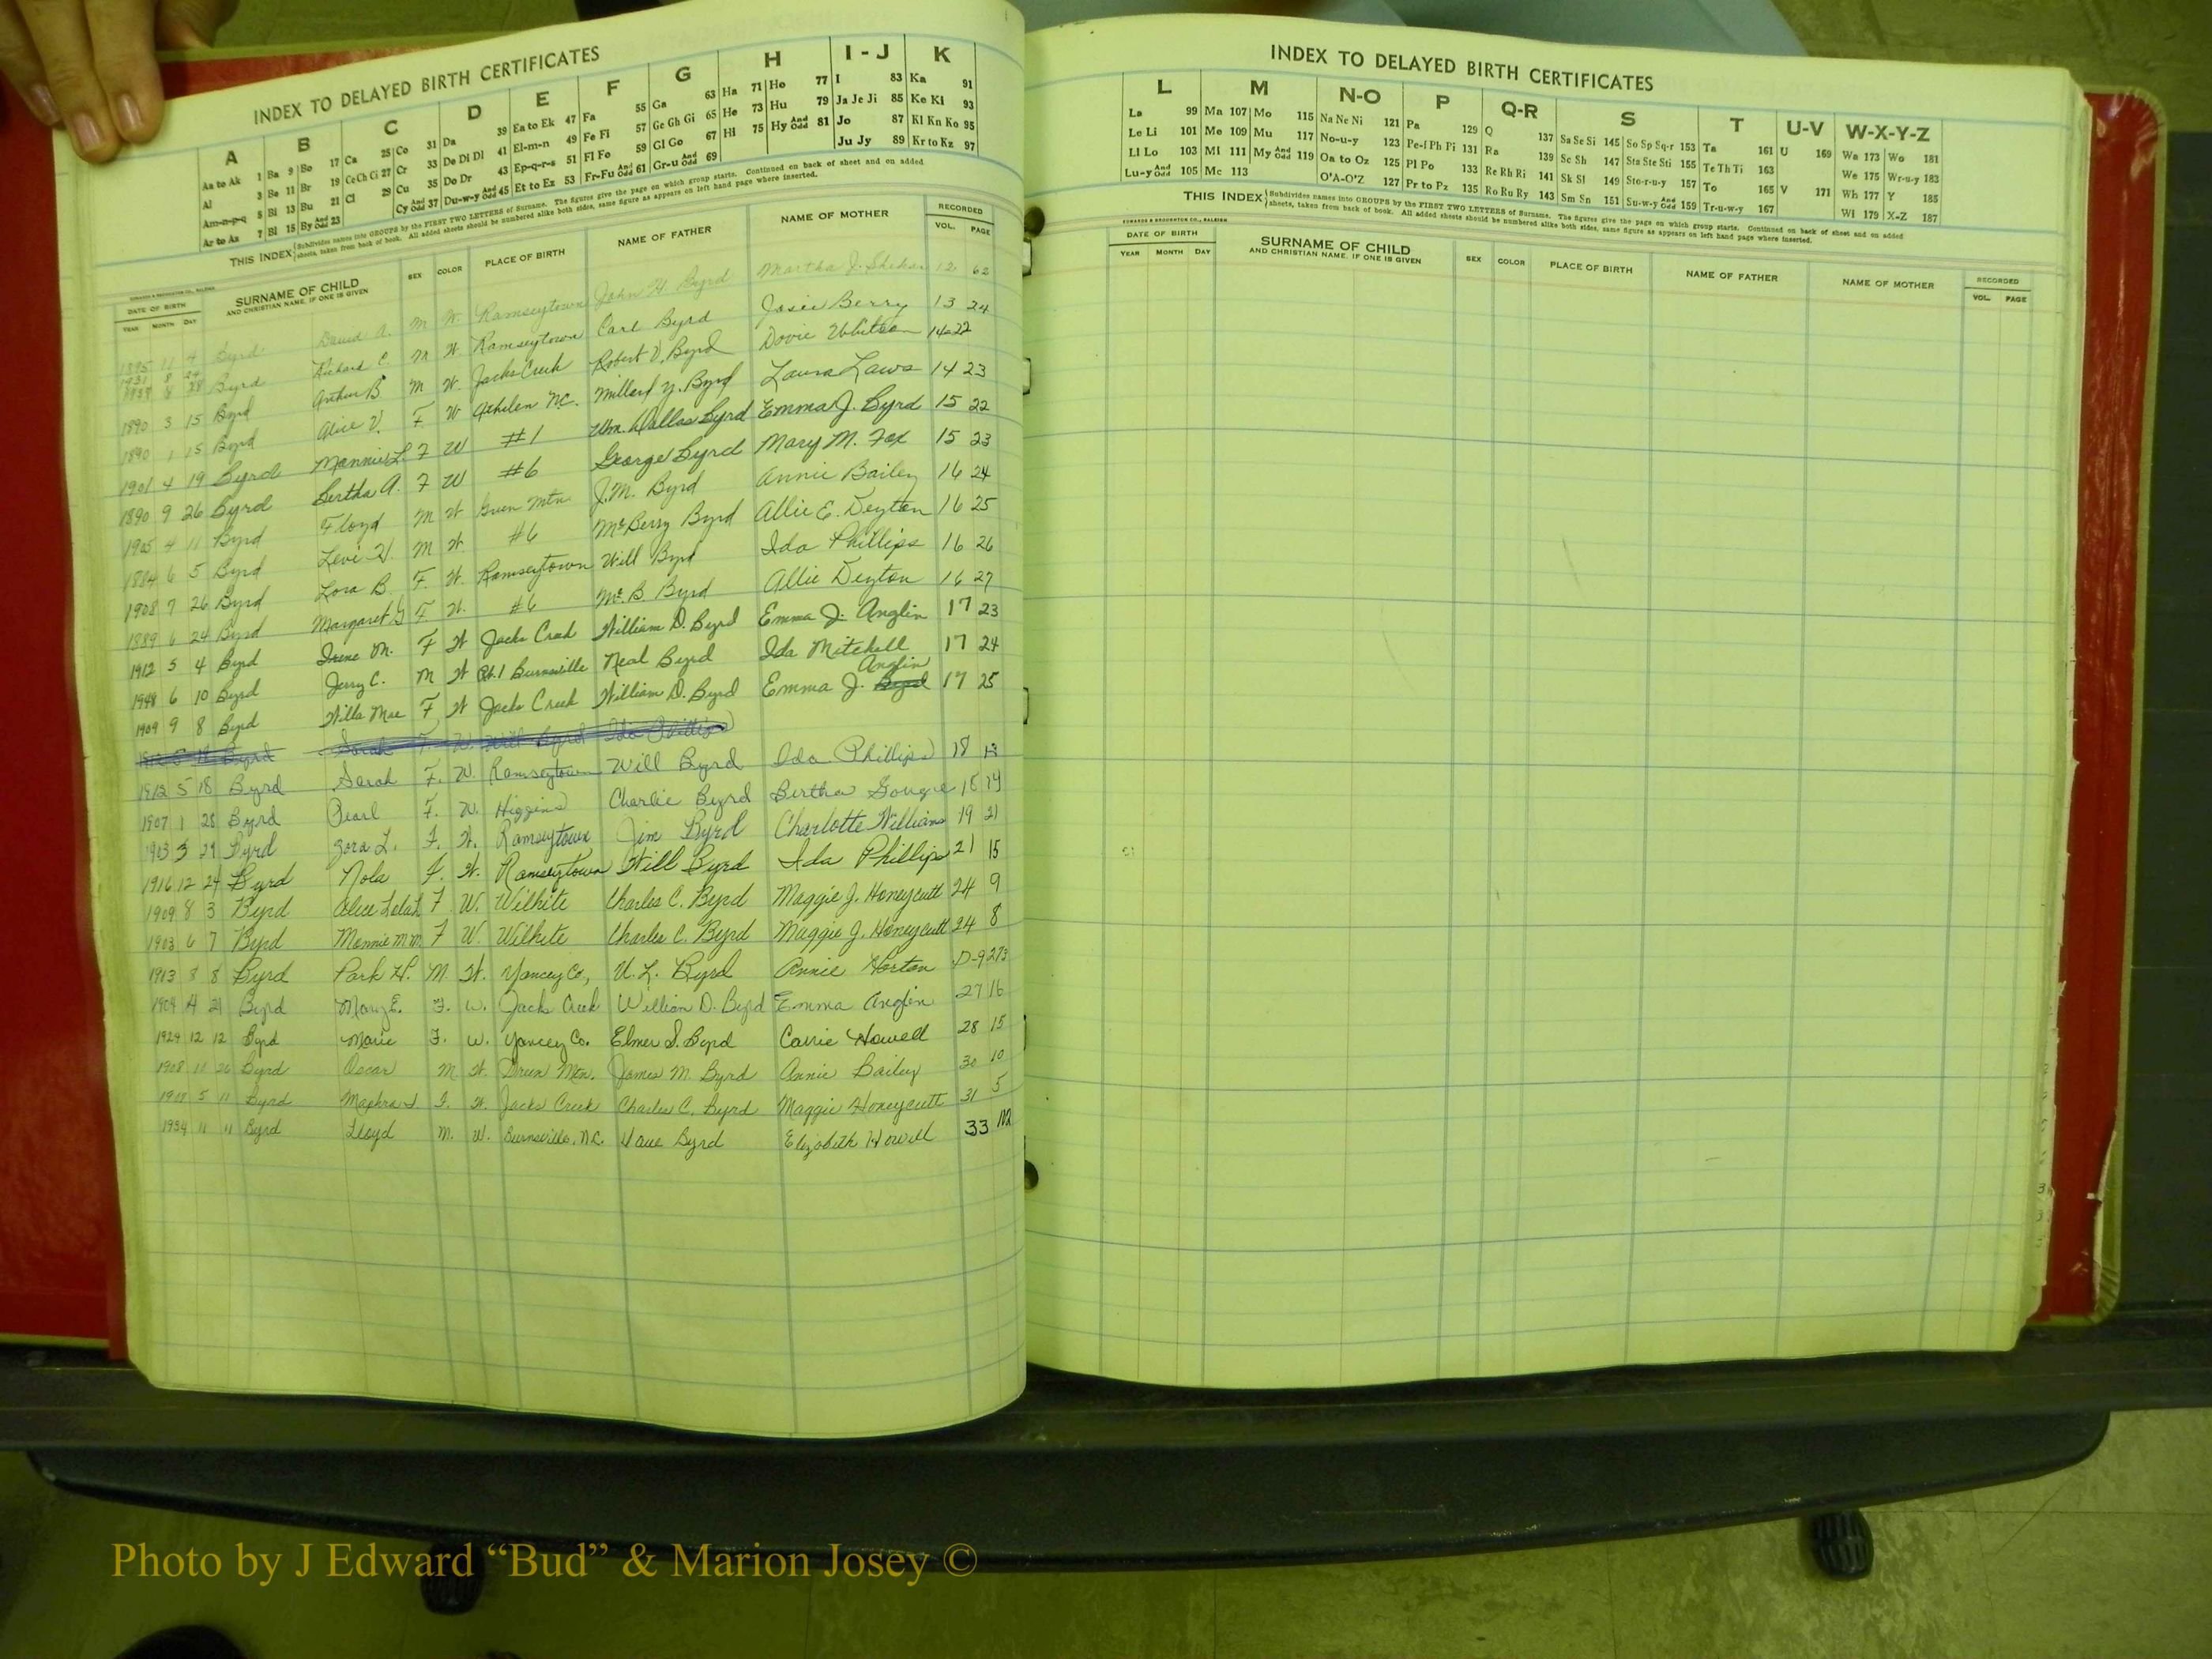 INDEX TO DELAYED BIRTH CERTIFICATES
A B C D E F G H I - J K
Aa to Ak 1 Ba 9 Bo 17 Ca 25 Co 31 Da 39 Ea to Ek 47 Fa 55 Ga 63 Ha 71 Ho 77 I 83 Ka 91
Al 3 Be 11 Br 19 Ce Ch Ci 27 Cr 33 De Di Dl 41 El-m-n 49 Fe Fi 57 Ge Gh Gi 65 He 73 Hu 79 Ja Je Ji 85 Ke Ki 93
Am-n-p-q 5 Bi 13 Bu 21 Cl 29 Cu 35 Do Dr 43 Ep-q-r-s 51 Fl Fo 59 Gl Go 67 Hi 75 Hy And Odd 81 Jo 87 Kl Kn Ko 95
Ar to Az 7 Bl 15 By And Odd 23 Cy And Odd 37 Du-w-y And Odd 45 Et to Ez 53 Fr-Fu And Odd 61 Gr-u And Odd 69 Ju Jy 89 Kr to Kz 97
THIS INDEX Subdivides names into GROUPS by the FIRST TWO LETTERS of Surname. The figures give the page on which group starts. Continued on back of sheet and on added
sheets, taken from back of book. All added sheets should be numbered alike both sides, same figure as appears on left hand page where inserted.
EDWARDS & BROUGHTON CO., RALEIGH
DATE OF BIRTH SURNAME OF CHILD SEX COLOR PLACE OF BIRTH NAME OF FATHER NAME OF MOTHER RECORDED
YEAR MONTH DAY AND CHRISTIAN NAME, IF ONE IS GIVEN VOL. PAGE
1895 11 4 Byrd David A. M W. Ramseytown John H Byrd Martha J. 12 62
1931 8 24 Richard C. M W. Ramseytown Carl Byrd Josie Berry 13 24
1938 8 28 Byrd Arthur B M W. Jacks Creek Robert V. Byrd Dovie Whitson 14 22
1890 3 15 Byrd Alice V. F. W N.C. Millard Y. Byrd Laura Laws 14 23
1890 1 15 Byrd Mannie L F W #1 Wm. Dallas Byrd Emma J. Byrd 15 22
1901 4 19 Byrd Bertha A. F W #6 George Byrd Mary M. Fox 15 23
1890 9 26 Byrd Floyd M W Green Mtn. J.M. Byrd Annie Bailey 16 24
1905 4 11 Byrd Levi H. M W. #6 McBerry Byrd Allie E. Deyton 16 25
1884 6 5 Byrd Lora B. F. W. Ramseytown Will Byrd Ida Phillips 16 26
1908 7 26 Byrd Margaret G F W. #6 Mc. B. Byrd Allie Deyton 16 27
1889 6 24 Byrd Irene M. F W Jacks Creek William D. Byrd Emma J. Anglin 17 23
1912 5 4 Byrd Jerry C. M W Rt. 1 Burnsville Neal Byrd Ida Mitchell 17 24
1948 6 10 Byrd Willa Mae F W Jacks Creek William D. Byrd Emma J. Byrd Anglin 17 25
1909 9 8 Byrd
1912 5 18 Byrd Sarah F. W. Will Byrd Ida Phillips
1912 5 18 Byrd Sarah F. W. Ramseytown Will Byrd Ida Phillips 18 13
1907 1 28 Byrd Pearl F. W. Higgins Charlie Byrd Bertha Gouge 18 14
1903 3 29 Byrd Zora L. F. W. Ramseytown Jim Byrd Charlotte Williams 19 21
1916 12 24 Byrd Nola F. W. Ramseytown Will Byrd Ida Phillips 21 15
1909 8 3 Byrd Alice Lela L F W. Wilhite Charles C. Byrd Maggie J. Honeycutt 24 9
1903 6 7 Byrd Mennie M m F W. Wilhite Charles C. Byrd Maggie J. Honeycutt 24 8
1913 8 8 Byrd Park H. M W. Yancey Co, U. L. Byrd Annie Horton D-9 273
1904 4 21 Byrd Mary E. F. W. Jacks Creek William D. Byrd Emma Anglin 27 16
1924 12 12 Byrd Marie F. W. Yancey Co. Elmer S. Byrd Carrie Howell 28 15
1908 11 26 Byrd Oscar M W. Green Mtn. James M. Byrd Annie Bailey 30 10
1907 5 11 Byrd F. W. Jacks Creek Charles C. Byrd Maggie Honeycutt 31 5
1934 11 11 Byrd Lloyd M. W. Burnsville, N.C. Dave Byrd Elizabeth Howell 33 112
INDEX TO DELAYED BIRTH CERTIFICATES
L M N-O P Q-R S T U-V W-X-Y-Z
La 99 Ma 107 Mo 115 Na Ne Ni 121 Pa 129 Q 137 Sa Se Si 145 So Sp Sq-r 153 Ta 161 U 169 Wa 173 Wo 181
Le Li 101 Me 109 Mu 117 No-u-y 123 Pe-f Ph Pi 131 Ra 139 Sc Sh 147 Sta Ste Sti 155 Te Th Ti 163 We 175 Wr-u-y 183
Ll Lo 103 Mi 111 My And Odd 119 Oa to Oz 125 Pl Po 133 Re Rh Ri 141 Sk Sl 149 Sto-r-u-y 157 To 165 V 171 Wh 177 Y 185
Lu-y And Odd 105 Mc 113 O'A-O'Z 127 Pr to Pz 135 Ro Ru Ry 143 Sm Sn 151 Su-w-y And Odd 159 Tr-u-w-y 167 Wi 179 X-Z 187
THIS INDEX Subdivides names into GROUPS by the FIRST TWO LETTERS of Surname. The figures give the page on which group starts. Continued on back of sheet and on added
sheets, taken from back of book. All added sheets should be numbered alike both sides, same figure as appears on left hand page where inserted.
EDWARDS & BROUGHTON CO., RALEIGH
DATE OF BIRTH SURNAME OF CHILD SEX COLOR PLACE OF BIRTH NAME OF FATHER NAME OF MOTHER RECORDED
YEAR MONTH DAY AND CHRISTIAN NAME, IF ONE IS GIVEN VOL. PAGE
Photo by J Edward “Bud” & Marion Josey ©